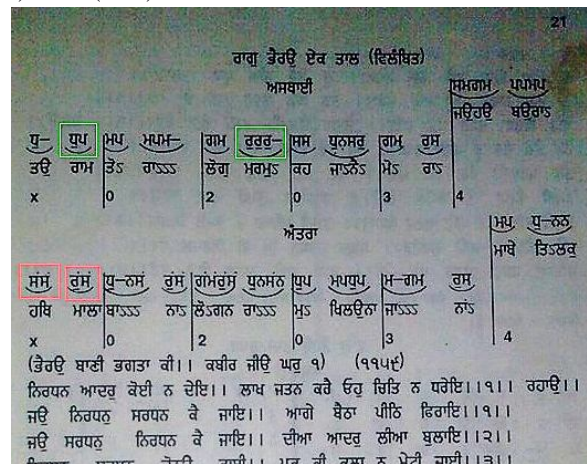 21
ਰਾਗੁ ਭੈਰਉ ਏਕ ਤਾਲ (ਵਿਲੰਬਿਤ)
ਅਸਥਾਈ
ਸਮਗਮ ਪਪਮਪ
ਜਉਹਉ ਬਉਰਾऽ
ਧ਼– ਧ਼ਪ ਮਪ ਮਪਮ– ਗਮ ਰ਼ਰ਼ਰ਼– ਸਸ ਧ਼ਨਸਰ਼ ਗਮ ਰ਼ਸ
ਤਉ ਰਾਮ ਤੋऽ ਰਾऽऽऽ ਲੋਗੁ ਮਰਮੁऽ ਕਹ ਜਾऽਨੈऽ ਮੋऽ ਰਾऽ
x 0 2 0 3 4
ਅੰਤਰਾ
ਮਪ ਧ਼–ਨਨ
ਮਾਥੇ ਤਿऽਲਕੁ
ਸਂਸਂ ਰ਼ਂਸਂ ਧ਼–ਨਸਂ ਰ਼ਂਸਂ ਗਂਮਂਰ਼ਂਸਂ ਧ਼ਨਸਂਨ ਧ਼ਪ ਮਪਧ਼ਪ ਮ–ਗਮ ਰ਼ਸ
ਹਥਿ ਮਾਲਾ ਬਾऽऽऽ ਨਾऽ ਲੋऽਗਨ ਰਾऽऽऽ ਮੁऽ ਖਿਲਉਨਾ ਜਾऽऽऽ ਨਾਂऽ
x 0 2 0 3 4
(ਭੈਰਉ ਬਾਣੀ ਭਗਤਾ ਕੀ।। ਕਬੀਰ ਜੀਉ ਘਰੁ ੧) (੧੧੫੯)
ਨਿਰਧਨ ਆਦਰੁ ਕੋਈ ਨ ਦੇਇ।। ਲਾਖ ਜਤਨ ਕਰੈ ਓਹੁ ਚਿਤਿ ਨ ਧਰੇਇ।।੧।। ਰਹਾਉ।।
ਜਉ ਨਿਰਧਨੁ ਸਰਧਨ ਕੈ ਜਾਇ।। ਆਗੇ ਬੈਠਾ ਪੀਠਿ ਫਿਰਾਇ।।੧।।
ਜਉ ਸਰਧਨੁ ਨਿਰਧਨ ਕੈ ਜਾਇ।। ਦੀਆ ਆਦਰੁ ਲੀਆ ਬੁਲਾਇ।।੨।।